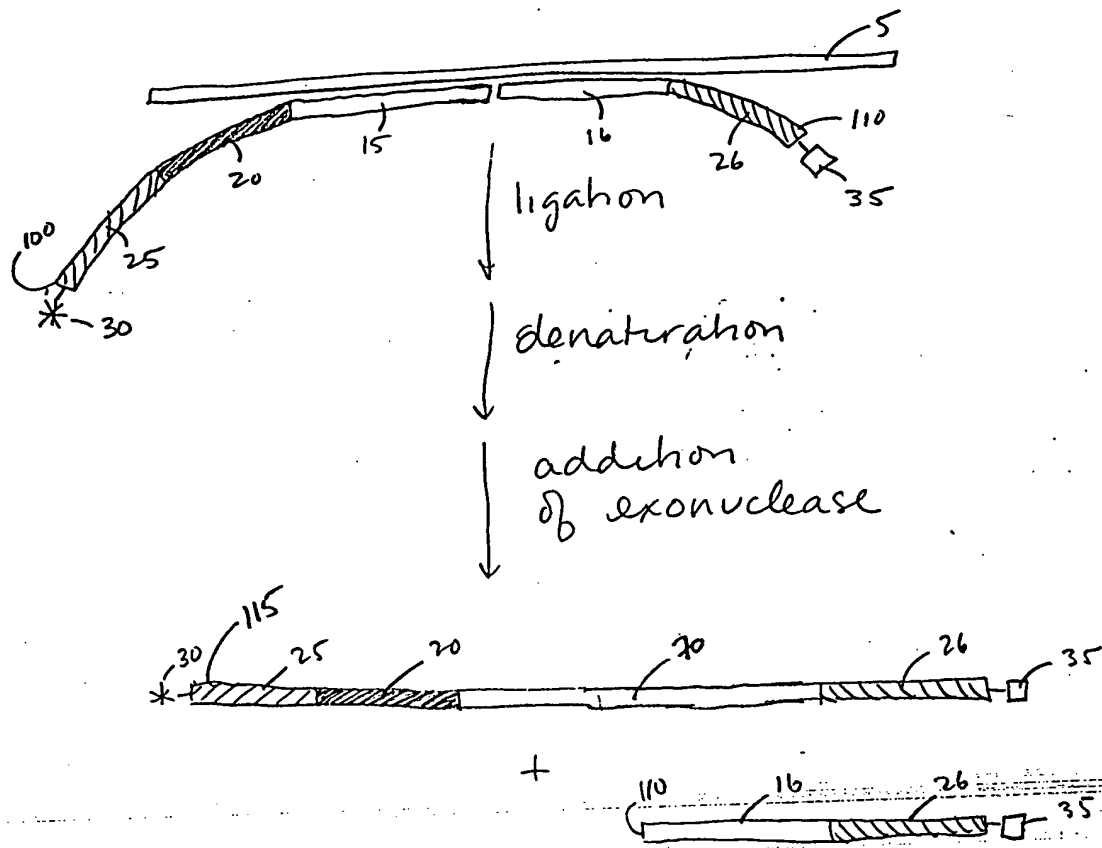 5
15
16
110
20
26
35
100
25
30
ligation
denaturation
addition
of exonuclease
115
30
25
20
70
26
35
+
110
16
26
35